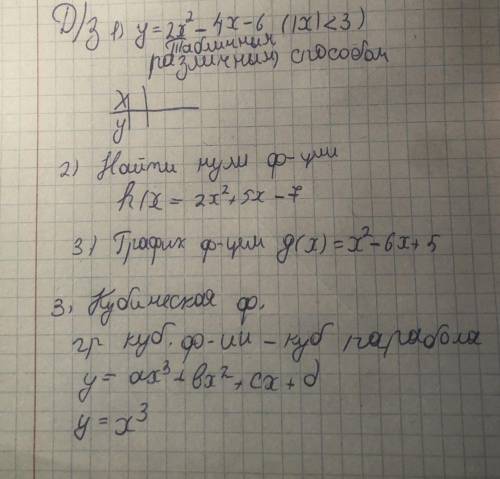 Д/з 1) y = 2x² - 4x - 6 (|x| < 3)
Табличния
различним способом
x
y
2) Найти нули ф-ции
h/x = 2x² + 5x - 7
3) График ф-ции g(x) = x² - 6x + 5
3, Кубическая ф.
гр куб. ф-ии - куб парабола
y = ax³ + bx² + cx + d
y = x³